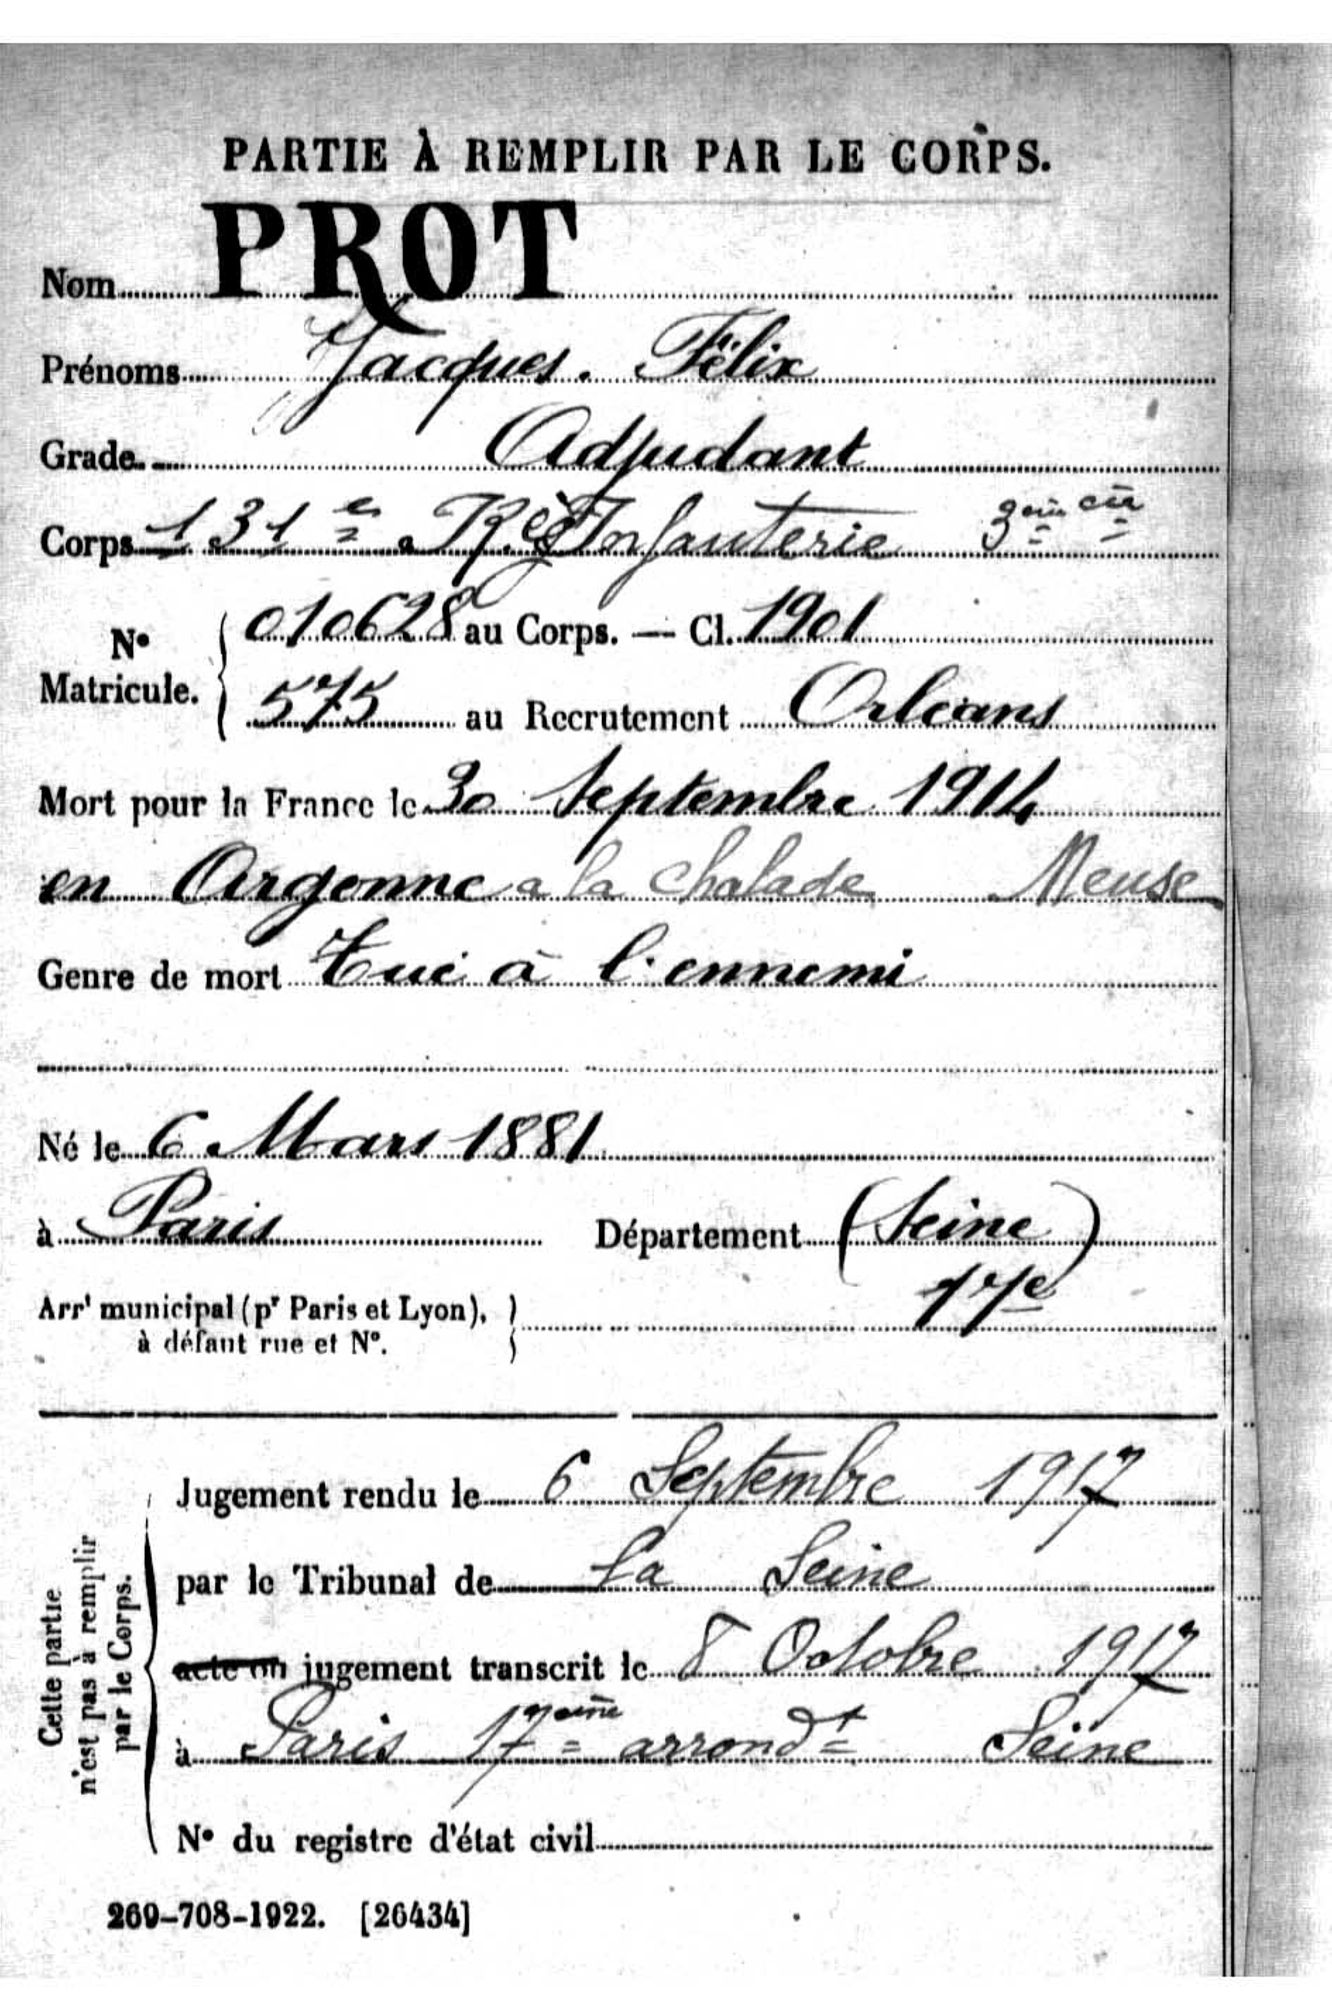 PARTIE À REMPLIR PAR LE CORPS.
Nom PROT
Prénoms Jacques. Félix
Grade Adjudant
Corps 131e Rég. Infanterie 3ème cie
No Matricule. 010628 au Corps. — Cl. 1901
575 au Recrutement Orléans
Mort pour la France le 30 Septembre 1914
en Argonne a la chalade Meuse
Genre de mort Tué à l'ennemi
Né le 6 Mars 1881
à Paris Département (Seine)
Arrt municipal (pr Paris et Lyon), à défaut rue et No. 17e
Cette partie n'est pas à remplir par le Corps.
Jugement rendu le 6 Septembre 1917
par le Tribunal de La Seine
acte ou jugement transcrit le 8 Octobre 1917
à Paris 17ème arrondt Seine
No du registre d'état civil
269-708-1922. [26434]